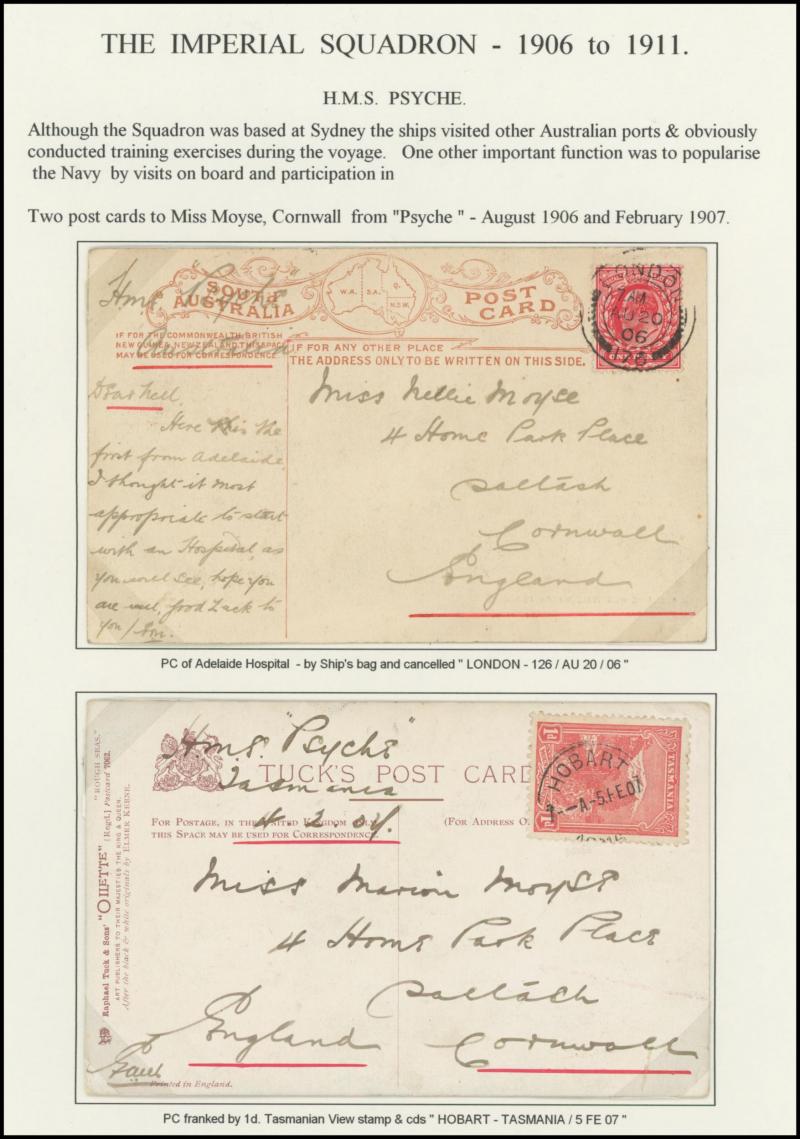 THE IMPERIAL SQUADRON - 1906 to 1911.
H.M.S. PSYCHE.
Although the Squadron was based at Sydney the ships visited other Australian ports & obviously
conducted training exercises during the voyage. One other important function was to popularise
the Navy by visits on board and participation in
Two post cards to Miss Moyse, Cornwall from "Psyche " - August 1906 and February 1907.
Hms "Psyche"
SOUTH
AUSTRALIA
W.A.
S.A.
Q.
N.S.W.
POST
CARD
LONDON
AM
AU 20
06
126
ONE PENNY
IF FOR THE COMMONWEALTH, BRITISH
NEW GUINEA, NEW ZEALAND, THIS SPACE
MAY BE USED FOR CORRESPONDENCE
IF FOR ANY OTHER PLACE
THE ADDRESS ONLY TO BE WRITTEN ON THIS SIDE.
Dear Nell,
Here this the
first from Adelaide,
I thought it most
appropriate to start
with an Hospital, as
you will see, hope you
are well, good Luck to
you
Miss Nellie Moyse
4 Home Park Place
Saltash
Cornwall
England
PC of Adelaide Hospital - by Ship's bag and cancelled " LONDON - 126 / AU 20 / 06 "
Hms "Psyche"
Tasmania
4.2.07.
TUCK'S POST CARD
FOR POSTAGE, IN THE UNITED KINGDOM ONLY,
THIS SPACE MAY BE USED FOR CORRESPONDENCE
(FOR ADDRESS O
1d
TASMANIA
1d
HOBART
A-5.FE.07
"ROUGH SEAS."
Raphael Tuck & Sons' "OILETTE" [Regd.] Postcard 7062.
ART PUBLISHERS TO THEIR MAJESTIES THE KING & QUEEN.
After the black & white originals by ELMER KEENE.
Miss Marion Moyse
4 Home Park Place
Saltash
England
Cornwall
Printed in England.
PC franked by 1d. Tasmanian View stamp & cds " HOBART - TASMANIA / 5 FE 07 "